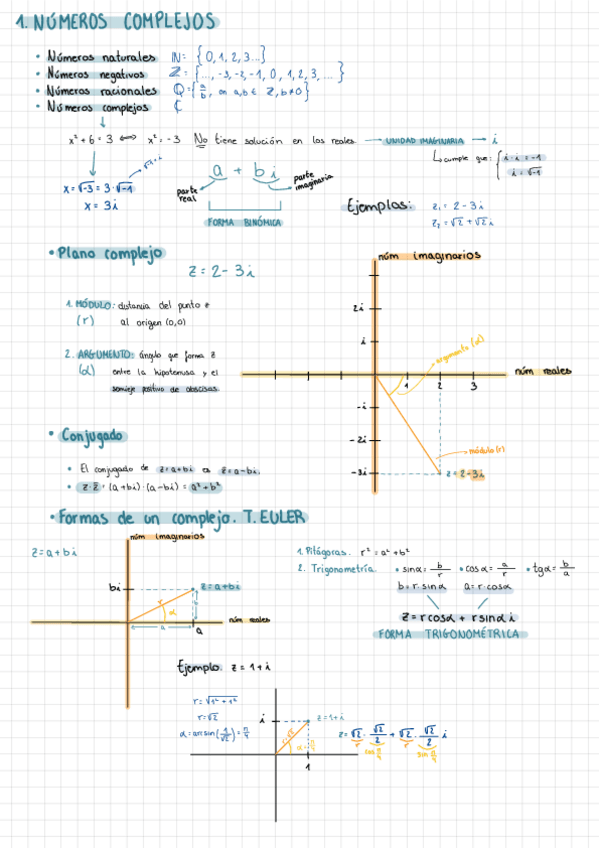 1. NÚMEROS COMPLEJOS
• Números naturales IN: { 0, 1, 2, 3...}
• Números negativos Z: {..., -3, -2, -1, 0, 1, 2, 3, ... }
• Números racionales Q = { a/b, con a,b ∈ Z, b≠0 }
• Números complejos ₵
x² + 6 = 3 ⟺ x² = -3 No tiene solución en los reales → UNIDAD IMAGINARIA → i
↳ cumple que: { i · i = -1
i = √-1
√-1 = i
x = √-3 = 3 · √-1
x = 3i
a + b i
parte real
parte imaginaria
FORMA BINÓMICA
Ejemplos: z₁ = 2 - 3i
z₂ = √2 + √2 i
• Plano complejo
z = 2 - 3i
1. MÓDULO: distancia del punto z
(r) al origen (0,0)
2. ARGUMENTO: ángulo que forma z
(α) entre la hipotenusa y el
semieje positivo de abscisas.
núm imaginarios
2i
i
argumento (α)
1 2 3
núm reales
-i
-2i
módulo (r)
-3i
z = 2-3i
• Conjugado
• El conjugado de z=a+bi es z̄=a-bi.
• z·z̄ = (a+bi)·(a-bi) = a²+b²
• Formas de un complejo. T. EULER
núm imaginarios
z=a+bi
bi
z=a+bi
r
α
b
a
a
núm reales
1. Pitágoras. r² = a² + b²
2. Trigonometría. • sinα = b/r • cosα = a/r • tgα = b/a
b = r·sinα a = r·cosα
z = r cosα + r sinα i
FORMA TRIGONOMÉTRICA
Ejemplo: z = 1+i
r = √1² + 1²
r = √2
α = arcsin(1/√2) = π/4
i
z=1+i
r=√2
α = π/4
1
z = √2 · √2/2 + √2 · √2/2 i
r cos π/4 r sin π/4